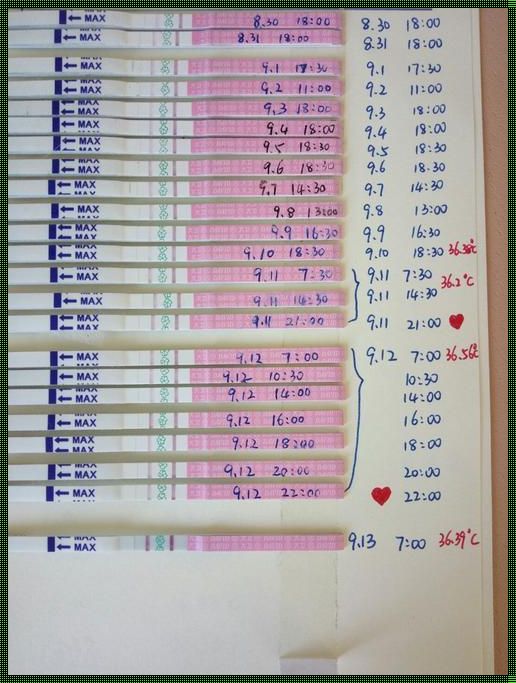 MAX 8.30 18:00 8.30 18:00
MAX 8.31 18:00 8.31 18:00
MAX 9.1 17:30 9.1 17:30
MAX 9.2 11:00 9.2 11:00
MAX 9.3 18:00 9.3 18:00
MAX 9.4 18:00 9.4 18:00
MAX 9.5 18:30 9.5 18:30
MAX 9.6 18:30 9.6 18:30
MAX 9.7 14:30 9.7 14:30
MAX 9.8 13:00 9.8 13:00
MAX 9.9 16:30 9.9 16:30
MAX 9.10 18:30 9.10 18:30 36.38℃
MAX 9.11 7:30 9.11 7:30 36.2℃
MAX 9.11 14:30 9.11 14:30
MAX 9.11 21:00 9.11 21:00
MAX 9.12 7:00 9.12 7:00 36.56℃
MAX 9.12 10:30 10:30
MAX 9.12 14:00 14:00
MAX 9.12 16:00 16:00
MAX 9.12 18:00 18:00
MAX 9.12 20:00 20:00
MAX 9.12 22:00 22:00
MAX 9.13 7:00 36.39℃
MAX